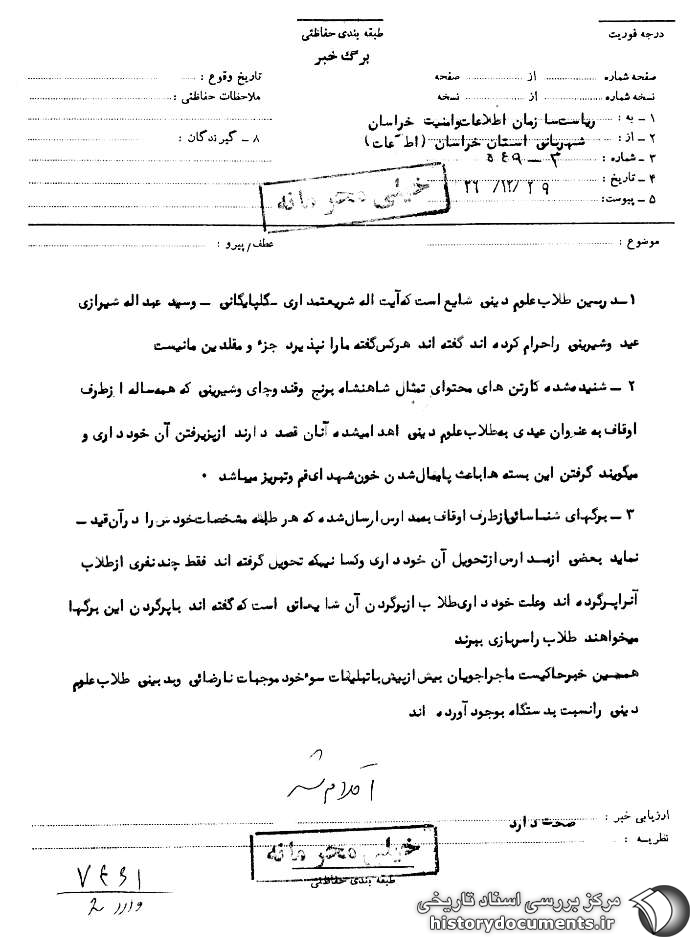 درجه فوریت
طبقه بندی حفاظتی
برگ خبر
صفحه شماره از صفحه
تاریخ وقوع :
نسخه شماره از نسخه
ملاحظات حفاظتی :
۱ ـ به : ریاست سازمان اطلاعات وامنیت خراسان
۲ ـ از : شهربانی استان خراسان (اطلاعات)
۸ ـ گیرندگان :
۳ ـ شماره : ۳ ـ ۵۴۹
۴ ـ تاریخ : ۳۶/۱۲/۲۹
۵ ـ پیوست:
خیلی محرمانه
موضوع :
عطف/پیرو :
۱ـ دربین طلاب علوم دینی شایع است که آیت اله شریعتمداری ـ گلپایگانی ـ وسید عبداله شیرازی
عید وشیرینی راحرام کرده اند گفته اند هرکس گفته مارا نپذیرد جزء مقلدین مانیست
۲ ـ شنیده شده کارتن های محتوای تمثال شاهنشاه برنج وقند وچای وشیرینی که همه ساله ازطرف
اوقاف به عنوان عیدی به طلاب علوم دینی اهدامیشده آنان قصد دارند ازپذیرفتن آن خودداری و
میگویند گرفتن این بسته ها باعث پایمال شدن خون شهدای قم وتبریز میباشد ۰
۳ ـ برگهای شناسائی ازطرف اوقاف بمدارس ارسال شده که هر طلبه مشخصات خودش را درآن قید ـ
نماید بعضی ازمدارس ازتحویل آن خودداری وکسانیکه تحویل گرفته اند فقط چندنفری ازطلاب
آنراپرکرده اند وعلت خودداری طلاب ازپرکردن آن شایعاتی است که گفته اند باپرکردن این برگها
میخواهند طلاب راسربازی ببرند
همچنین خبرحاکیست ماجراجویان بیش ازپیش باتبلیغات سوءخود موجبات نارضائی وبدبینی طلاب علوم
دینی رانسبت بدستگاه بوجود آورده اند
اقدام شد
ارزیابی خبر : صحت دارد
نظریه :
خیلی محرمانه
طبقه بندی حفاظتی
مرکز بررسی اسناد تاریخی
historydocuments.ir